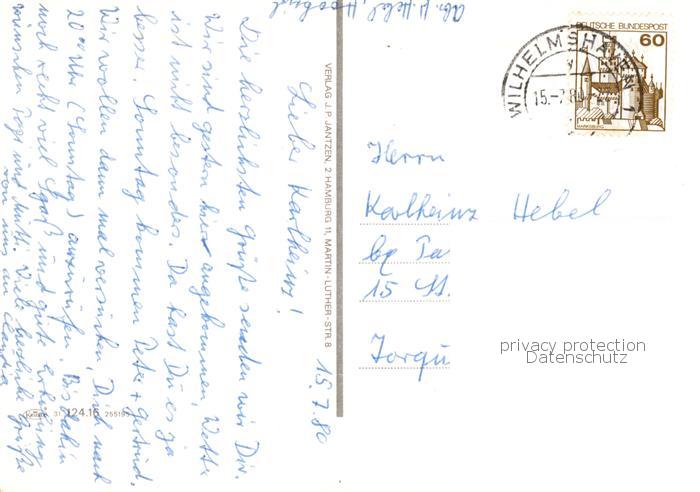 Abs. H. Hebel,
15.7.80
Lieber Karlheinz!
Die herzlichsten Grüße senden wir Dir.
Wir sind gestern hier angekommen, Wetter
ist nicht besonders. Da hast Du es ja
besser. Sonntag kommen Peter + Gertrud.
Wir wollen dann mal versuchen, Dich nach
20⁰⁰ Uhr (Sonntag) anzurufen. Bis dahin
noch recht viel Spaß und gute Erholung
wünschen Papi und Mutti. Viele herzliche Grüße
von uns an Claudia
VERLAG J. P. JANTZEN, 2 HAMBURG 11, MARTIN-LUTHER-STR. 8
31 124.16 255195
DEUTSCHE BUNDESPOST
60
MARKSBURG
WILHELMSHAVEN 1
15.-7.80
Herrn
Karlheinz Hebel
bg Pa
15 St.
Torgu
privacy protection
Datenschutz